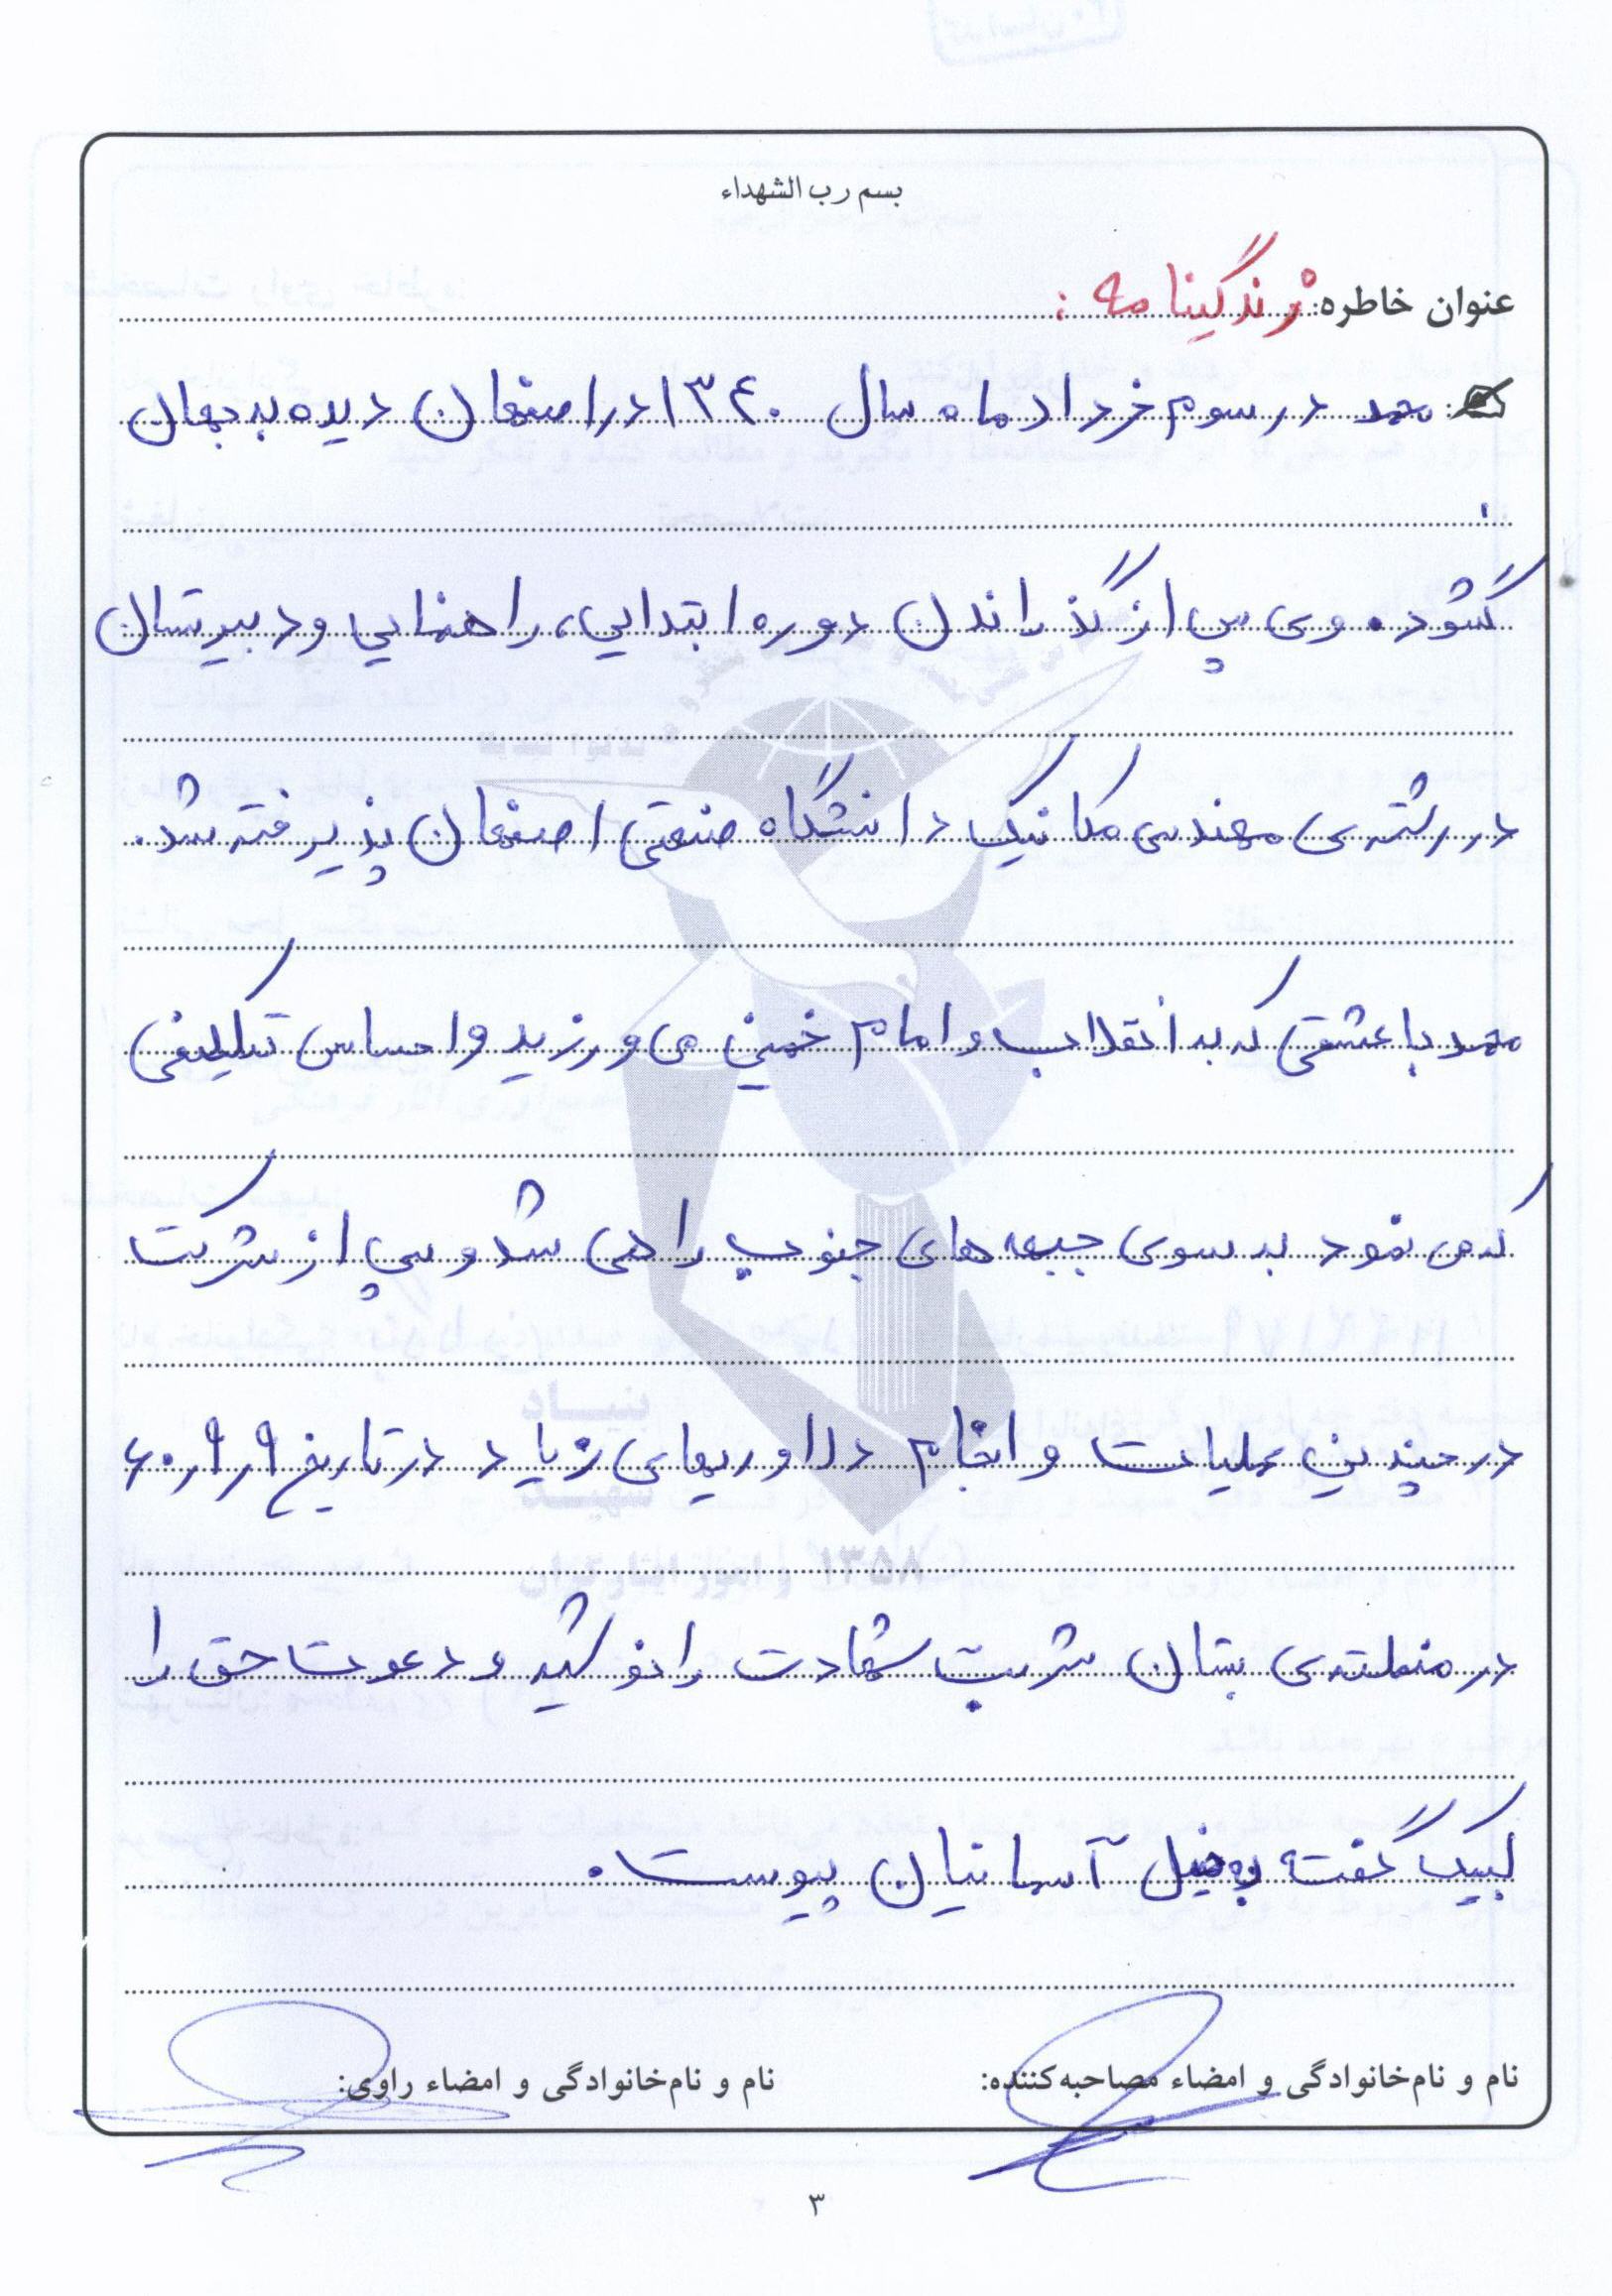 بسم رب الشهداء
عنوان خاطره: زندگینامه :
محمد در سوم خرداد ماه سال ۱۳۴۰ در اصفهان دیده به جهان
گشود. وی پس از گذراندن دوره ابتدایی، راهنمایی و دبیرستان
در رشته‌ی مهندسی مکانیک دانشگاه صنعتی اصفهان پذیرفته شد.
محمد با عشقی که به انقلاب و امام خمینی می ورزید و احساس تکلیفی
که می نمود به سوی جبهه های جنوب راهی شد و پس از شرکت
در چندین عملیات و انجام دلاوریهای زیاد در تاریخ ۶۰٫۹٫۹
در منطقه‌ی بستان شربت شهادت را نوشید و دعوت حق را
لبیک گفته به خیل آسمانیان پیوست.
نام و نام‌خانوادگی و امضاء مصاحبه‌کننده: نام و نام‌خانوادگی و امضاء راوی:
۳